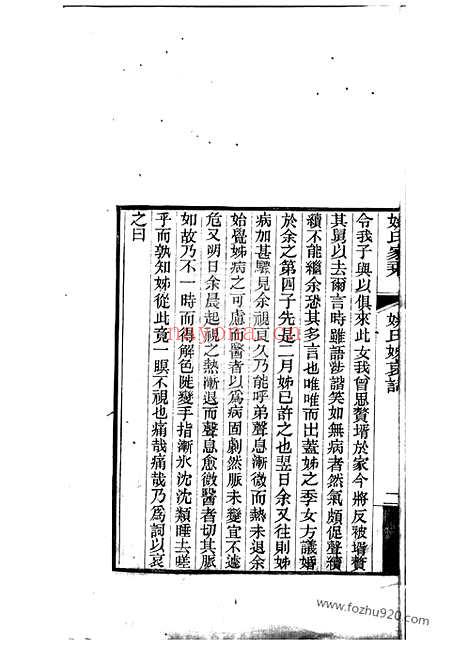 姚氏家乘 姚氏姊哀詞 二
令我子與以俱來此女我曾思贅壻於家今將反被壻贅
其舅以去爾言時雖語涉諧笑如無病者然氣頗促聲續
續不能繼余恐其多言也唯唯而出蓋姊之季女方議婚
於余之第四子先是二月姊已許之也翌日余又往則姊
病加甚驟見余視久乃能呼弟聲息漸微而熱未退余
始覺姊病之可慮而醫者以爲病固劇然脈未變宜不遽
危又明日余晨起視之熱漸退而聲息愈微醫者切其脈
如故乃不一時而得解色陡變手指漸氷沈沈類睡去嗟
乎而孰知姊從此竟一瞑不視也痛哉痛哉乃爲詞以哀
之曰
nayona.cn
www.fozhu920.com